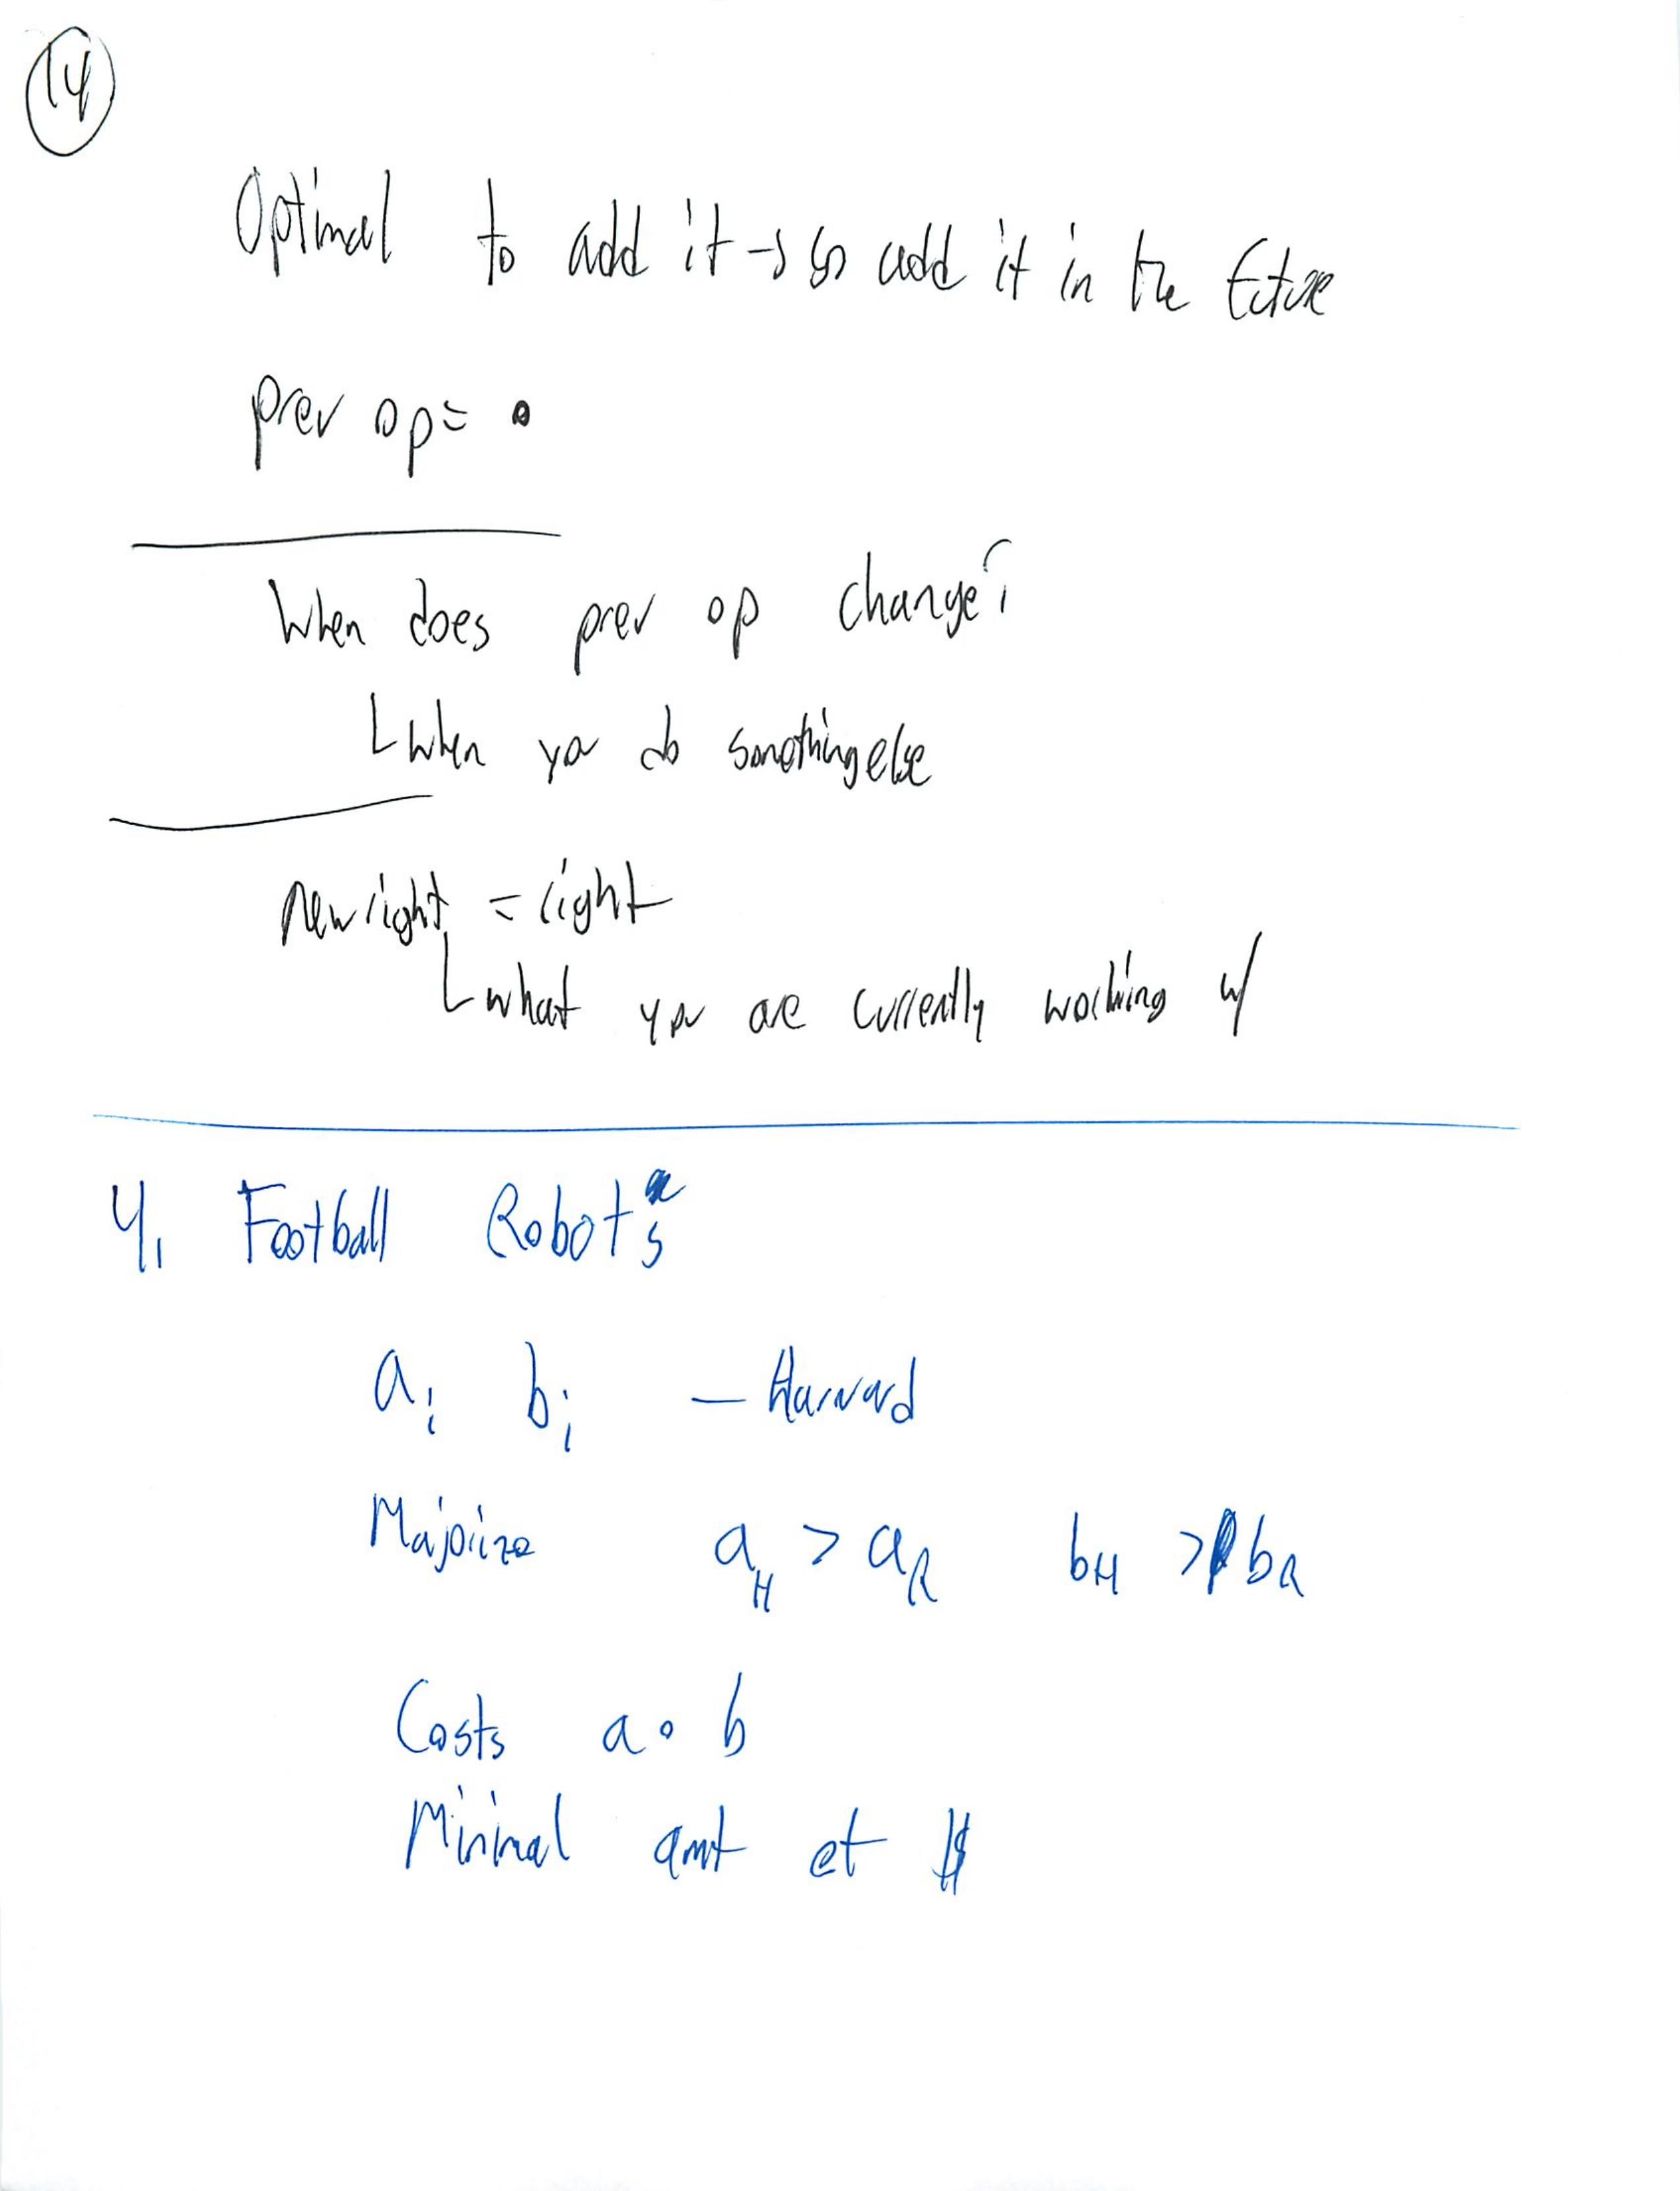 14
Optimal to add it → so add it in the future
prev op = •
When does prev op change?
when you do something else
new right = right
what you are currently working w/
4. Football Robots
a_i b_i – Harvard
Majorize a_H > a_R b_H > b_R
Costs a • b
Minimal amt of $